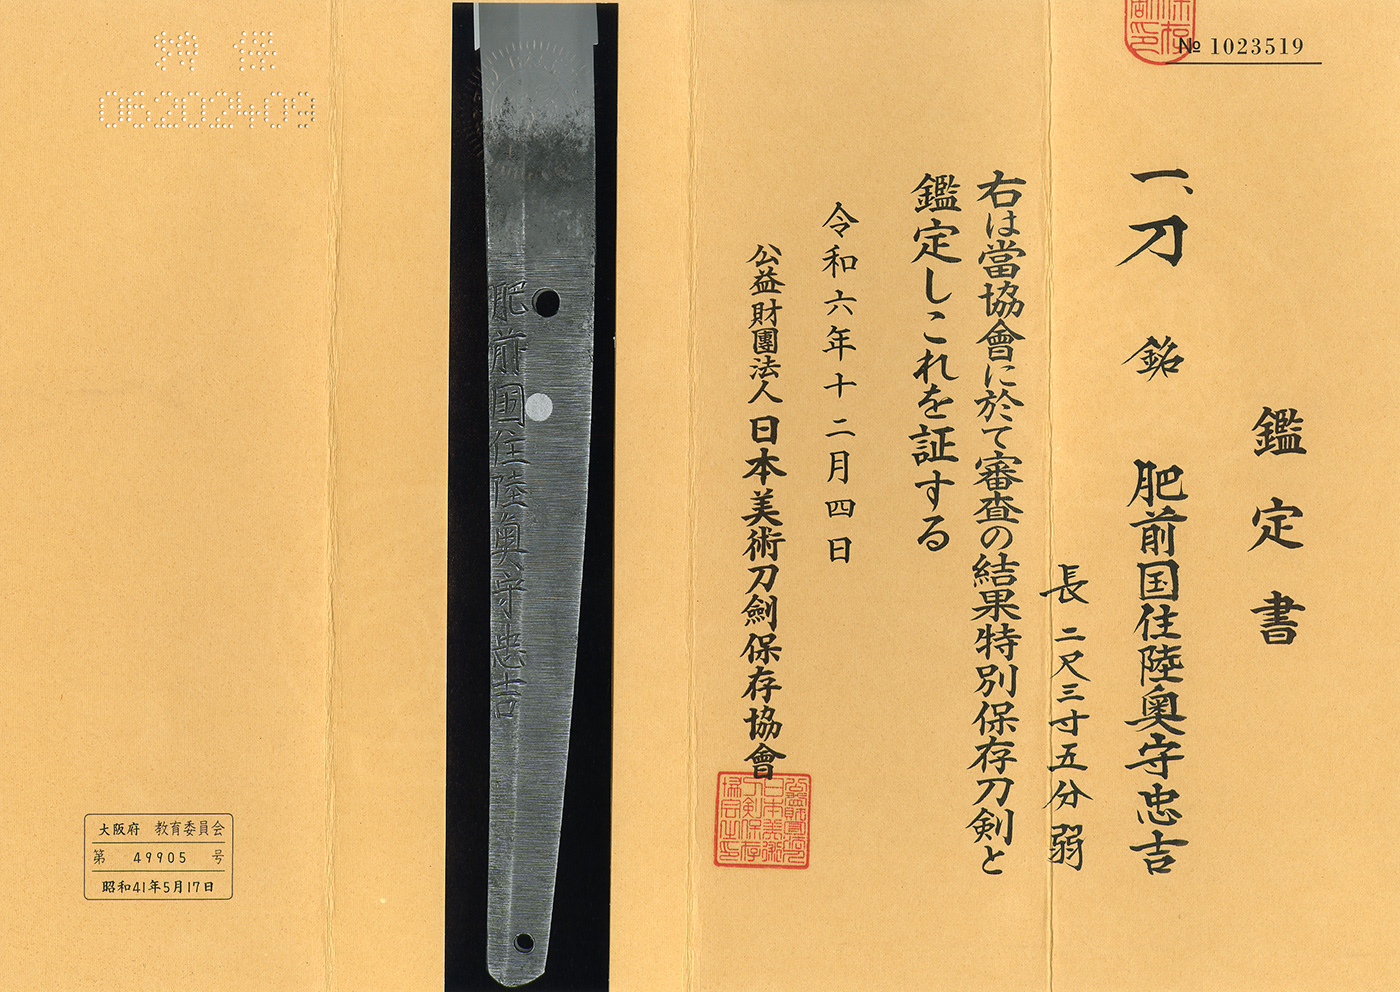 № 1023519
鑑定書
一、刀 銘 肥前国住陸奥守忠吉
長 二尺三寸五分弱
右は當協會に於て審査の結果特別保存刀剣と
鑑定しこれを証する
令和六年十二月四日
公益財團法人 日本美術刀劍保存協會
肥前国住陸奥守忠吉
特保
06202409
大阪府 教育委員会
第 49905 号
昭和41年5月17日